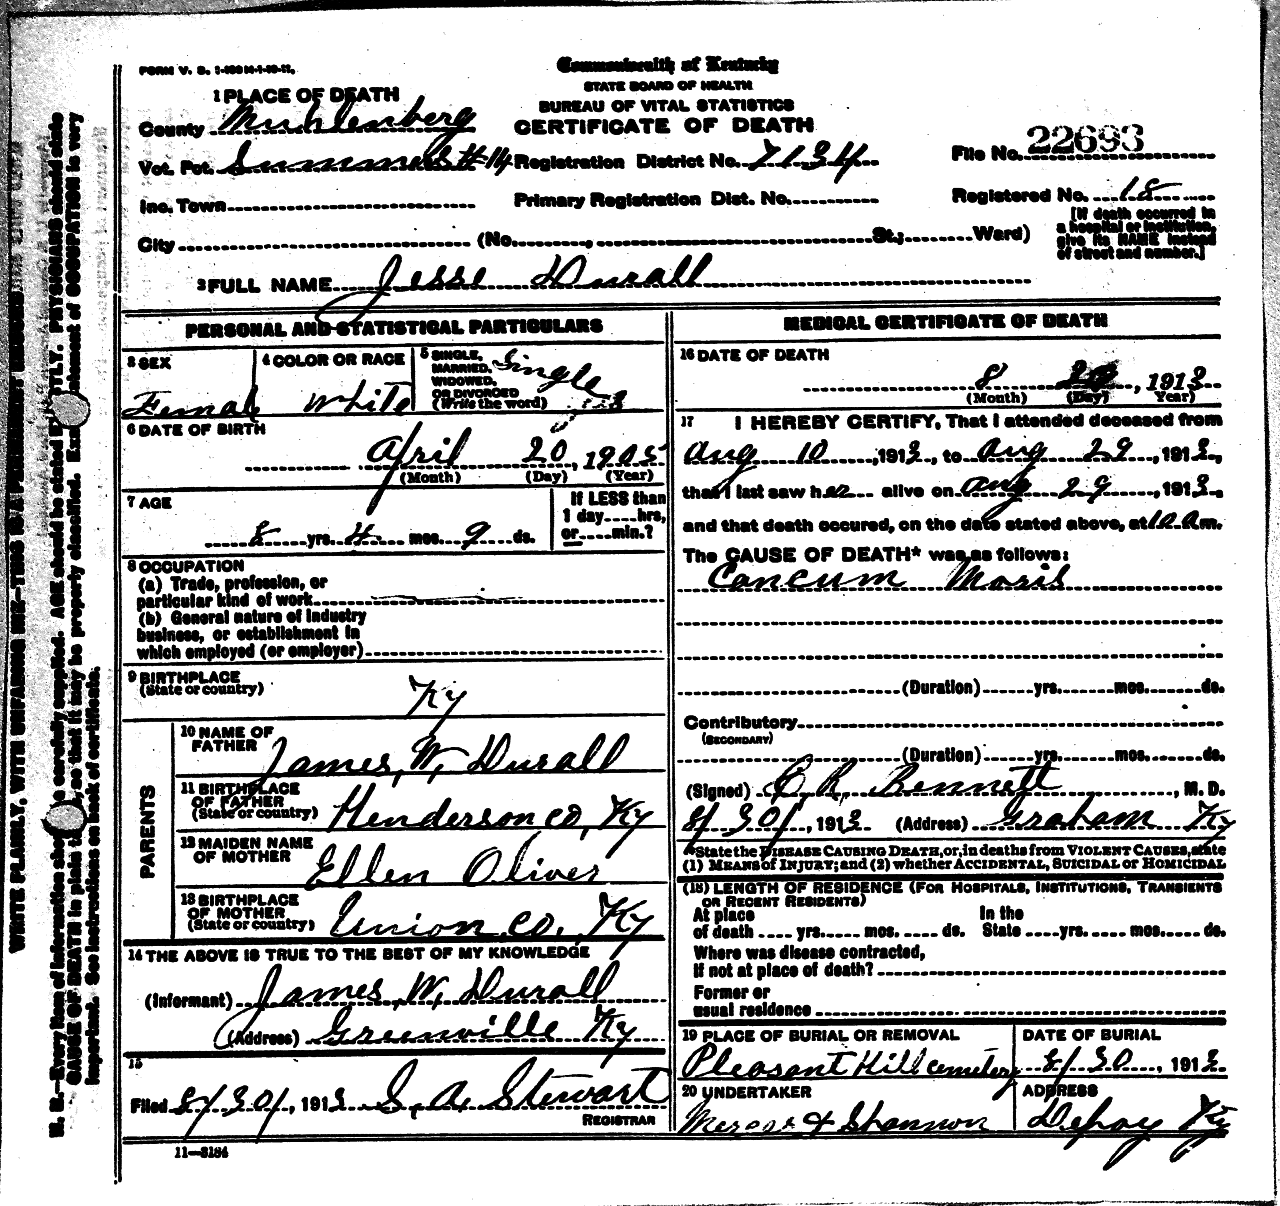 FORM V. S. 1-
Commonwealth of Kentucky
STATE BOARD OF HEALTH
BUREAU OF VITAL STATISTICS
CERTIFICATE OF DEATH
1 PLACE OF DEATH
County Muhlenberg
Vot. Pct. Summers #14 Registration District No. 7134 File No. 22693
Inc. Town Primary Registration Dist. No. Registered No. 18
City (No. , St.; Ward)
[If death occurred in
a hospital or institution,
give its NAME instead
of street and number.]
2 FULL NAME Jesse Durall
PERSONAL AND STATISTICAL PARTICULARS
3 SEX Femal
4 COLOR OR RACE White
5 SINGLE, MARRIED, WIDOWED, OR DIVORCED (Write the word) Single
6 DATE OF BIRTH
April 20, 1905
(Month) (Day) (Year)
7 AGE
8 yrs. 4 mos. 9 ds.
If LESS than
1 day hrs,
or min.?
8 OCCUPATION
(a) Trade, profession, or
particular kind of work
(b) General nature of industry
business, or establishment in
which employed (or employer)
9 BIRTHPLACE
(State or country) Ky
PARENTS
10 NAME OF
FATHER James, W, Durall
11 BIRTHPLACE
OF FATHER
(State or country) Henderson co, Ky
12 MAIDEN NAME
OF MOTHER Ellen Oliver
13 BIRTHPLACE
OF MOTHER
(State or country) Union co. Ky
14 THE ABOVE IS TRUE TO THE BEST OF MY KNOWLEDGE
(Informant) James, W, Durall
(Address) Greenville Ky
15
Filed 8/30/, 1913 S, A, Stewart
REGISTRAR
11—3184
MEDICAL CERTIFICATE OF DEATH
16 DATE OF DEATH
8 , 1913
(Month) (Day) (Year)
17 I HEREBY CERTIFY, That I attended deceased from
Aug 10 , 1913, to Aug 29 , 1913,
that I last saw her alive on Aug 29 , 1913,
and that death occured, on the date stated above, at 10 a m.
The CAUSE OF DEATH* was as follows:
Cancum Moris
(Duration) yrs. mos. ds.
Contributory
(SECONDARY)
(Duration) yrs. mos. ds.
(Signed) C, R, Bennett , M. D.
8/30/, 1913 (Address) Graham Ky
*State the DISEASE CAUSING DEATH, or, in deaths from VIOLENT CAUSES, state
(1) MEANS OF INJURY; and (2) whether ACCIDENTAL, SUICIDAL or HOMICIDAL
(18) LENGTH OF RESIDENCE (FOR HOSPITALS, INSTITUTIONS, TRANSIENTS
OR RECENT RESIDENTS)
At place In the
of death yrs. mos. ds. State yrs. mos. ds.
Where was disease contracted,
If not at place of death?
Former or
usual residence
19 PLACE OF BURIAL OR REMOVAL DATE OF BURIAL
Pleasant Hill cemetery 8/30 , 1913
20 UNDERTAKER ADDRESS
& Shannon Depoy Ky
WRITE PLAINLY, WITH UNFADING INK—THIS IS A PERMANENT RECORD
N. B.—Every item of information carefully supplied. AGE should be stated EXACTLY. PHYSICIANS should state
CAUSE OF DEATH in plain so that it may be properly classified. statement of OCCUPATION is very
important. See instructions on back of certificate.